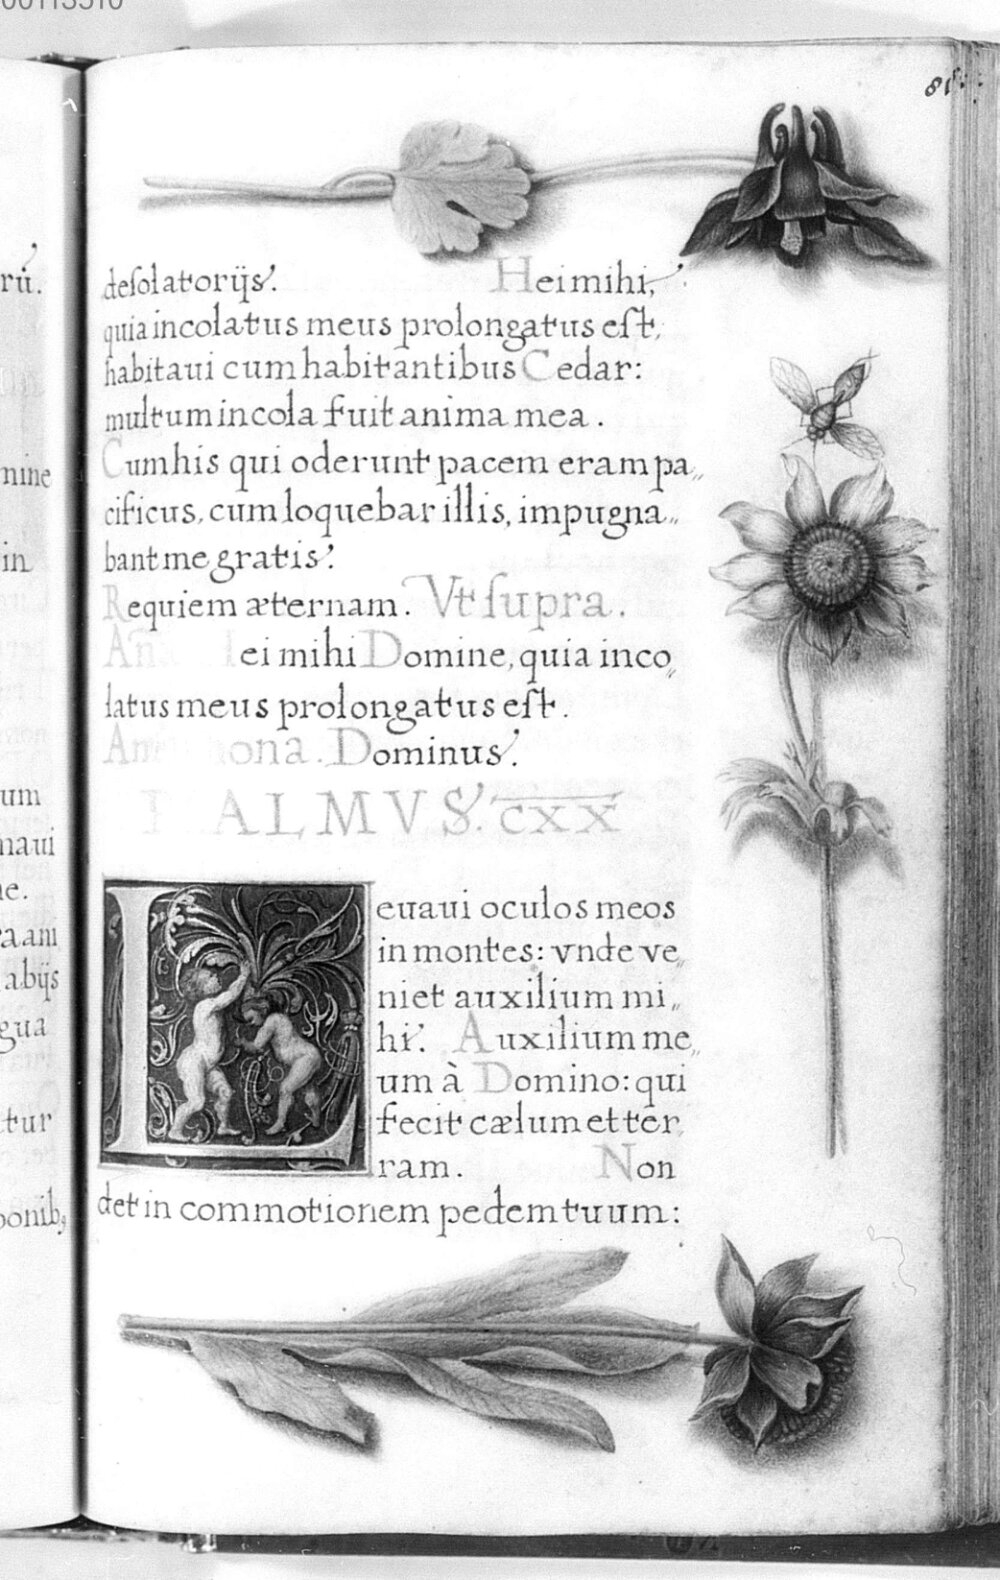 00113510
81
desolatorijs. Hei mihi,
quia incolatus meus prolongatus est,
habitaui cum habitantibus Cedar:
multum incola fuit anima mea.
Cum his qui oderunt pacem eram pa„
cificus, cum loquebar illis, impugna„
bant me gratis.
Requiem æternam. Vt supra.
Añ Hei mihi Domine, quia inco„
latus meus prolongatus est.
ona. Dominus.
ALMVS. CXX
Leuaui oculos meos
in montes: vnde ve„
niet auxilium mi„
hi. Auxilium me„
um à Domino: qui
fecit cælum et ter„
ram. Non
det in commotionem pedem tuum:
rū.
mine
in
um
maui
ne.
aam
abijs
gua
tur
onib9